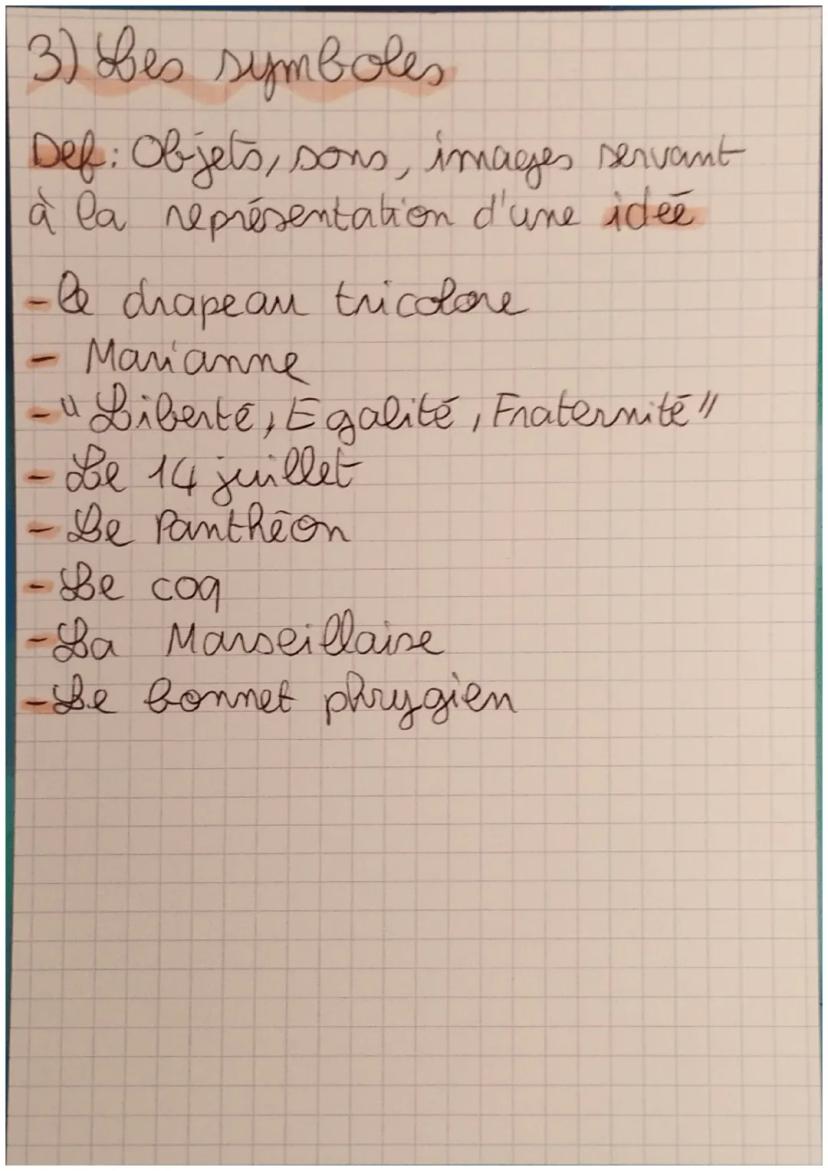 3) Les symboles
Def: Objets, sons, images servant
à la représentation d'une ideé
- le drapeau tricolore
- Marianne
- "Liberté, Egalité, Fraternité"
- Le 14 juillet
- Le Panthéon
- Le coq
- La Marseillaise
- Le bonnet phrygien